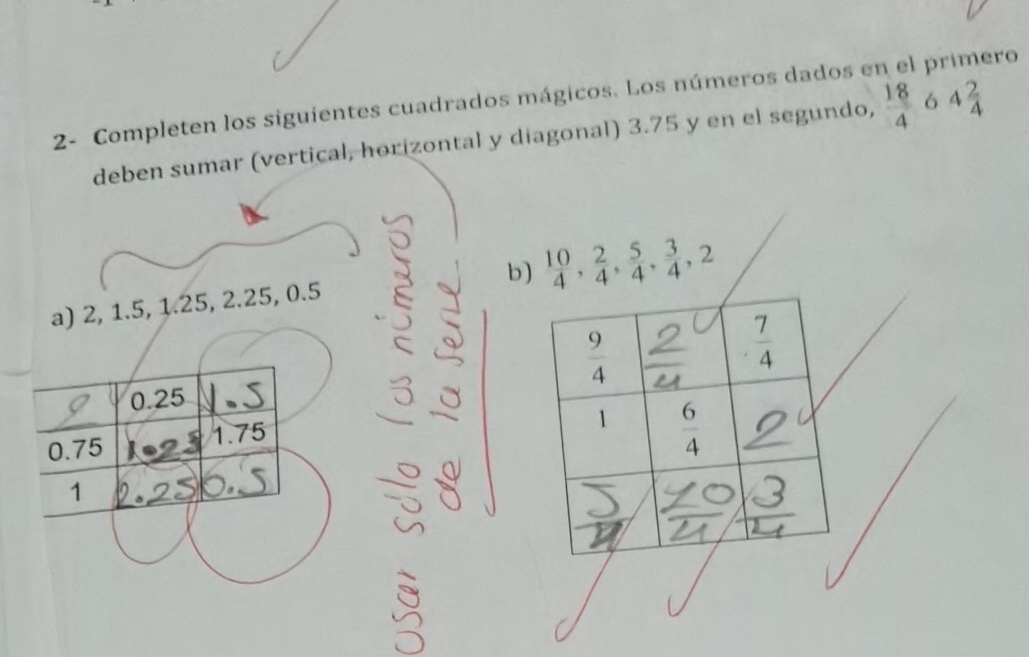 2- Completen los siguientes cuadrados mágicos. Los números dados en el primero
deben sumar (vertical, horizontal y diagonal) 3.75 y en el segundo, 18/4 ó 4 2/4
usar sólo los números
de la serie
a) 2, 1.5, 1.25, 2.25, 0.5
2 0.25 1.5
0.75 1.25 1.75
1 2.25 0.5
b) 10/4, 2/4, 5/4, 3/4, 2
9/4 2/4 7/4
1 6/4 2
5/4 10/4 3/4